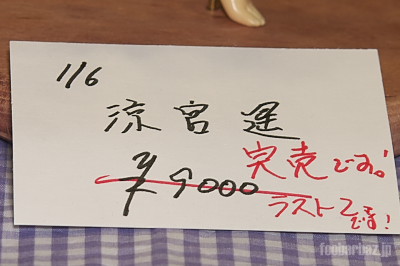 1/6
涼宮遥
¥9000
完売です。!
ラスト2
です!
foobarbaz.jp